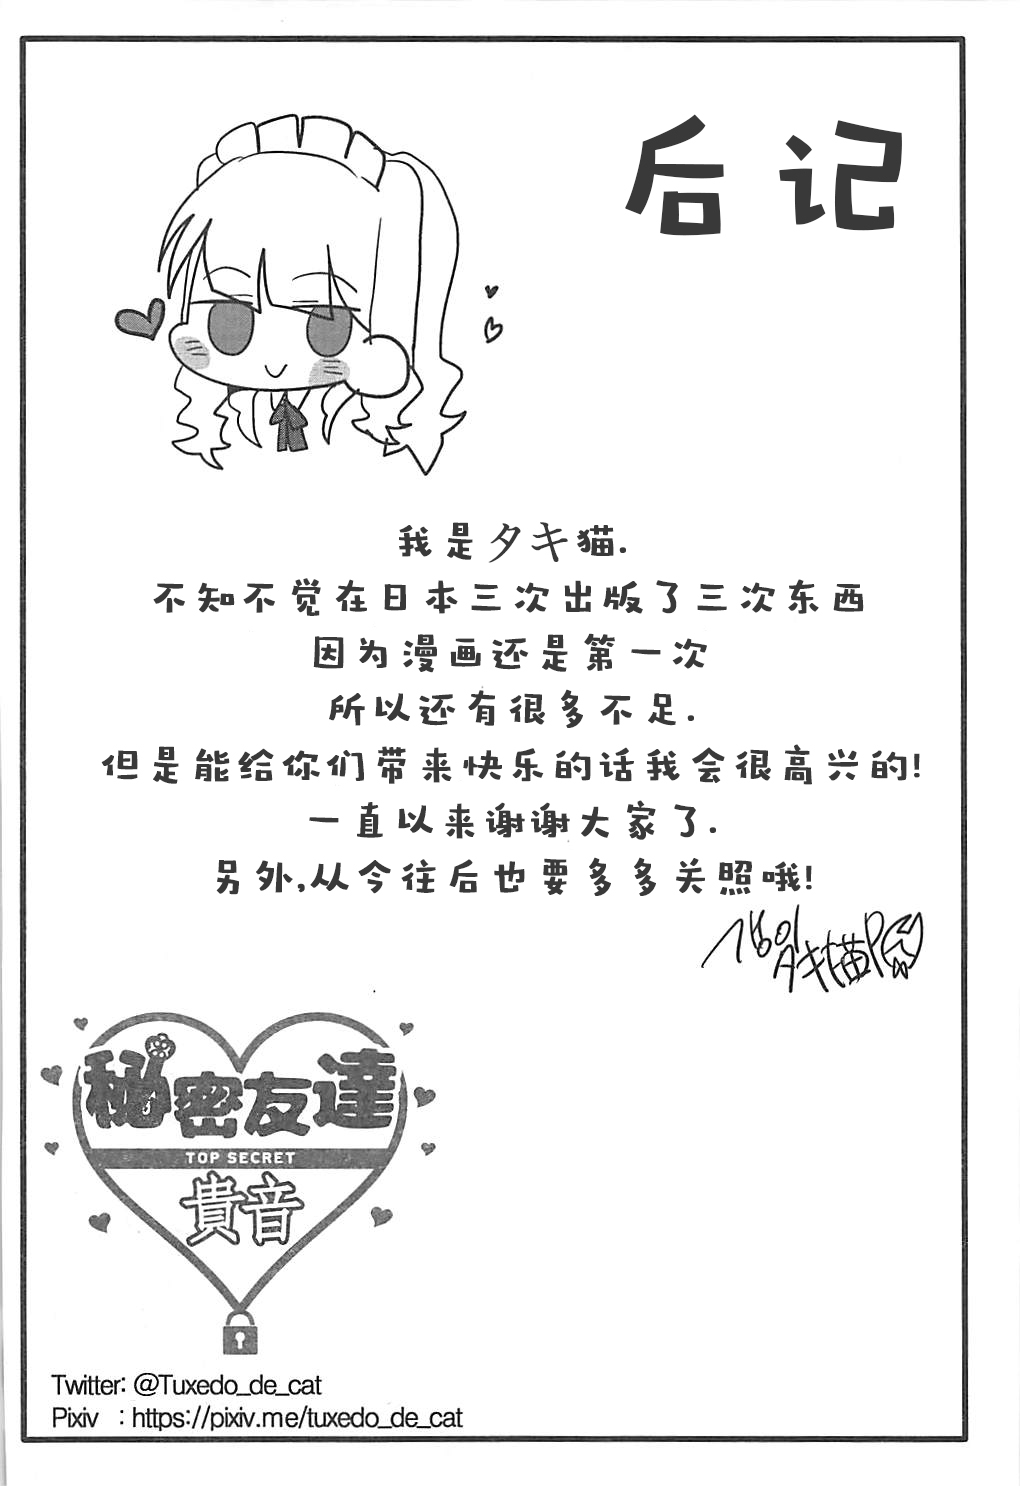 后记
我是タキ猫.
不知不觉在日本三次出版了三次东西
因为漫画还是第一次
所以还有很多不足.
但是能给你们带来快乐的话我会很高兴的!
一直以来谢谢大家了.
另外,从今往后也要多多关照哦!
秘密友達
TOP SECRET
貴音
Twitter: @Tuxedo_de_cat
Pixiv : https://pixiv.me/tuxedo_de_cat